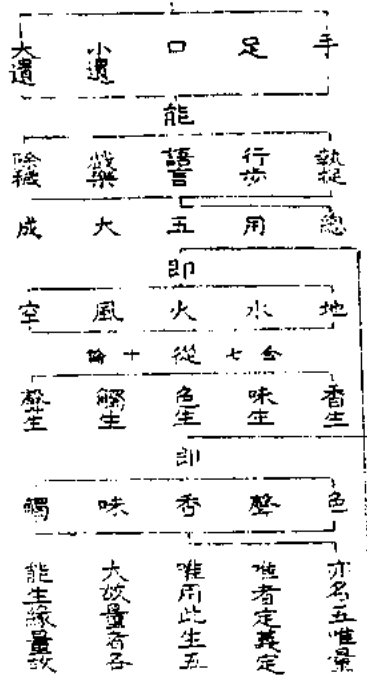 手 足 口 小遺 大遺
能
執捉 行步 語言 戲樂 除穢
總用五大成
即
地 水 火 風 空
金七 從 十論
香生 味生 色生 觸生 聲生
即
色 聲 香 味 觸
亦名五唯量
唯者定義定
唯用此生五
大故量者各
能生緣量故